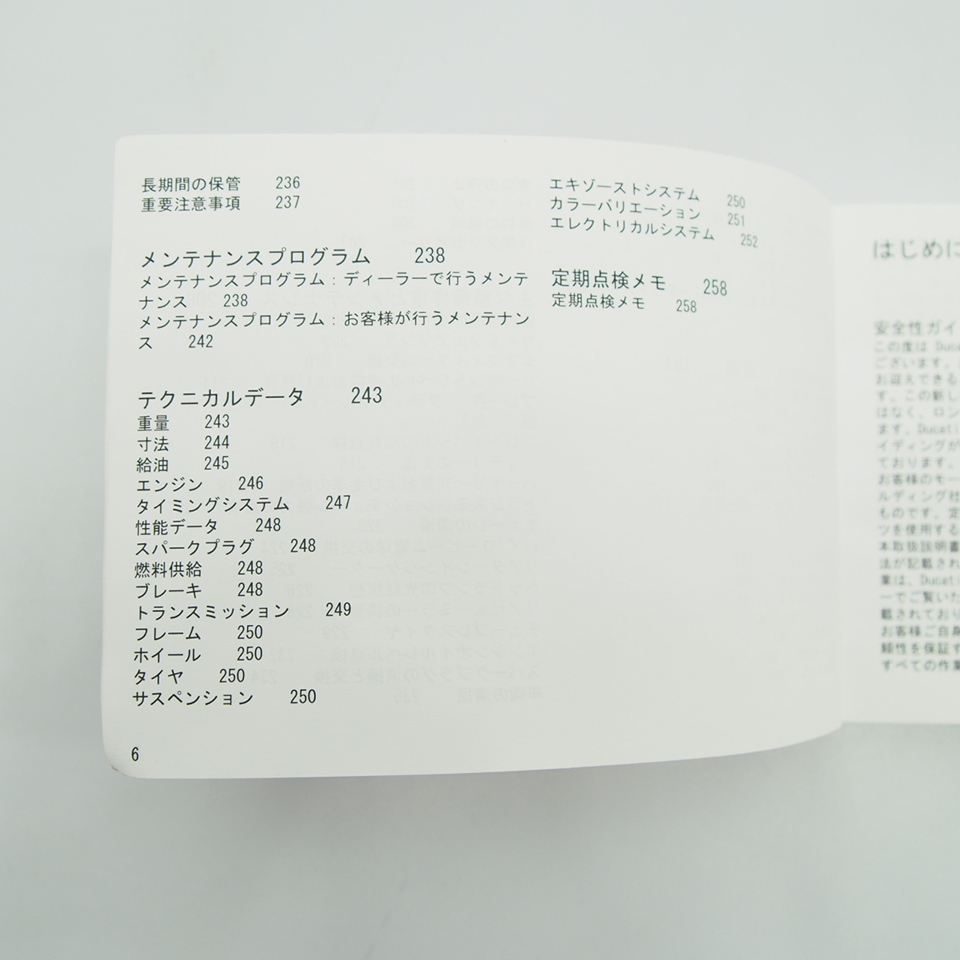 長期間の保管 236
重要注意事項 237
メンテナンスプログラム 238
メンテナンスプログラム：ディーラーで行うメンテ
ナンス 238
メンテナンスプログラム：お客様が行うメンテナン
ス 242
テクニカルデータ 243
重量 243
寸法 244
給油 245
エンジン 246
タイミングシステム 247
性能データ 248
スパークプラグ 248
燃料供給 248
ブレーキ 248
トランスミッション 249
フレーム 250
ホイール 250
タイヤ 250
サスペンション 250
6
エキゾーストシステム 250
カラーバリエーション 251
エレクトリカルシステム 252
定期点検メモ 258
定期点検メモ 258
はじめに
安全性ガイ
この度は Duca
ございます。
お迎えできる
す。この新し
はなく、ロン
ます。Ducati
イディングが
ております。
お客様のモー
ルディング社
ものです。定
ツを使用する
本取扱説明書
法が記載され
業は、Ducati
ーでご覧いた
載されており
お客様ご自身
頼性を保証す
すべての作業